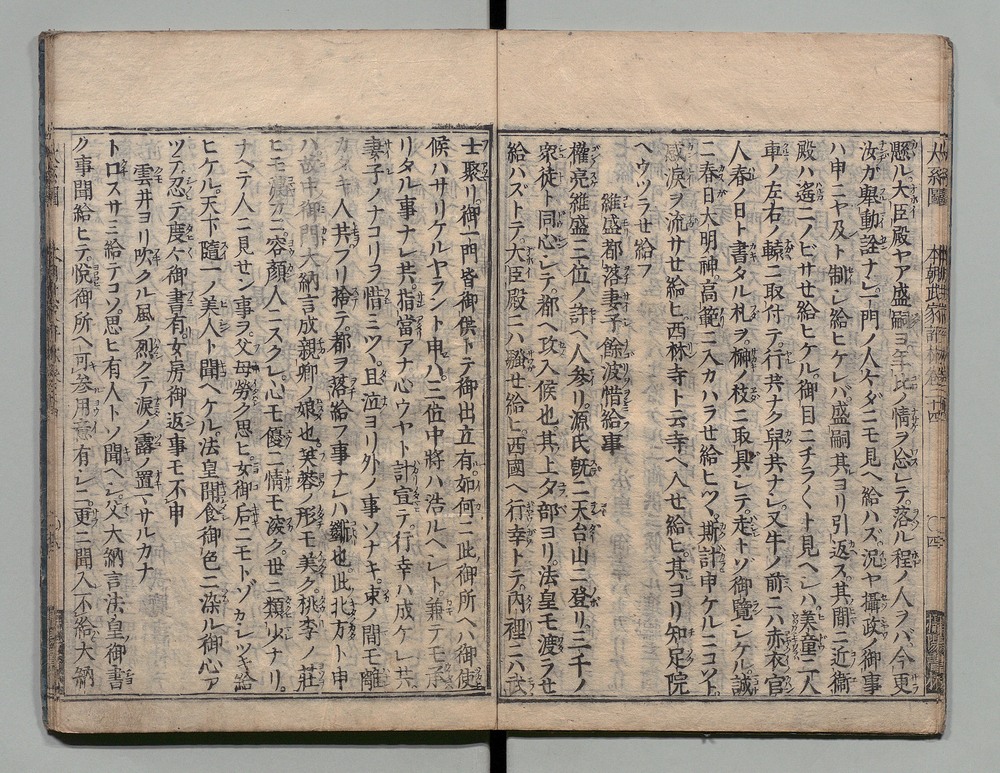 懸ル大臣殿ヤア盛嗣ヨ年比ノ情ヲ忘レテ落ル程ノ人ヲバ今更
汝カ擧動詮ナシ一門ノ人々ダニモ見ヘ給ハズ況ヤ攝政御事
ハ申ニヤ及ト制シ給ヒケレバ盛嗣其ヨリ引返ス其間ニ近衞
殿ハ遙ニノビサせ給ヒケル御目ニチラ〱ト見ヘシハ美童二人
車ノ左右ノ轅ニ取付テ行共ナク舁共ナシ又牛ノ前ニハ赤衣官
人春ノ日ト書タル札ヲ榊ノ枝ニ取具シテ走トソ御覽シケル誠
ニ春日大明神ノ高範ニ入カハラせ給ヒツヽ斯計申ケルニコソト
感涙ヲ流サせ給ヒ西林寺ト云寺ヘ入せ給ヒ其ヨリ知足院
ヘウツラせ給フ
維盛都落妻子餘波惜給事
權亮維盛三位ノ許ヘ人参リ源氏旣ニ天台山ニ登リ三千ノ
衆徒ト同心シテ都ヘ攻入候也其上夕部ヨリ法皇モ渡ラせ
給ハズトテ大臣殿ニハ騷せ給ヒ西國ヘ行幸トテ内裡ニハ武
士聚リ御一門皆御供トテ御出立有如何ニ此御所ヘハ御使
候ハサリケルヤラント申ハ三位中將ハ浩ルヘシト兼テモ承
リタル事ナレ共指當アナ心ウヤト計宣テ行幸ハ成ケレ共
妻子ノナコリヲ惜ミツヽ且泣ヨリ外ノ事ソナキ束ノ間モ離
カタキ人共フリ捨テ都ヲ落給フ事ナレハ斷也此北方ト申
ハ故中御門大納言成親卿ノ娘也芙蓉ノ形モ美ク桃李ノ莊
ヒモ濃カニ容顏人ニスクレ心モ優ニ情モ深ク世ニ類少ナリ
ナヘテ人ニ見せン事ヲ父母勞ク思ヒ女御后ニモトゾカシツキ給
ヒケル天下隨一ノ美人ト聞ヘケル法皇聞食御色ニ染ル御心ア
ツテ忍テ度々御書有女房御返事モ不申
雲井ヨリ吹クル風ノ烈クテ涙ノ露ノ置マサルカナ
トロスサミ給テコソ思ヒ有人トソ聞ヘシ父大納言法皇御書
ク事聞給ヒテ悅御所ヘ可参用意有レニ更ニ聞入不給大納